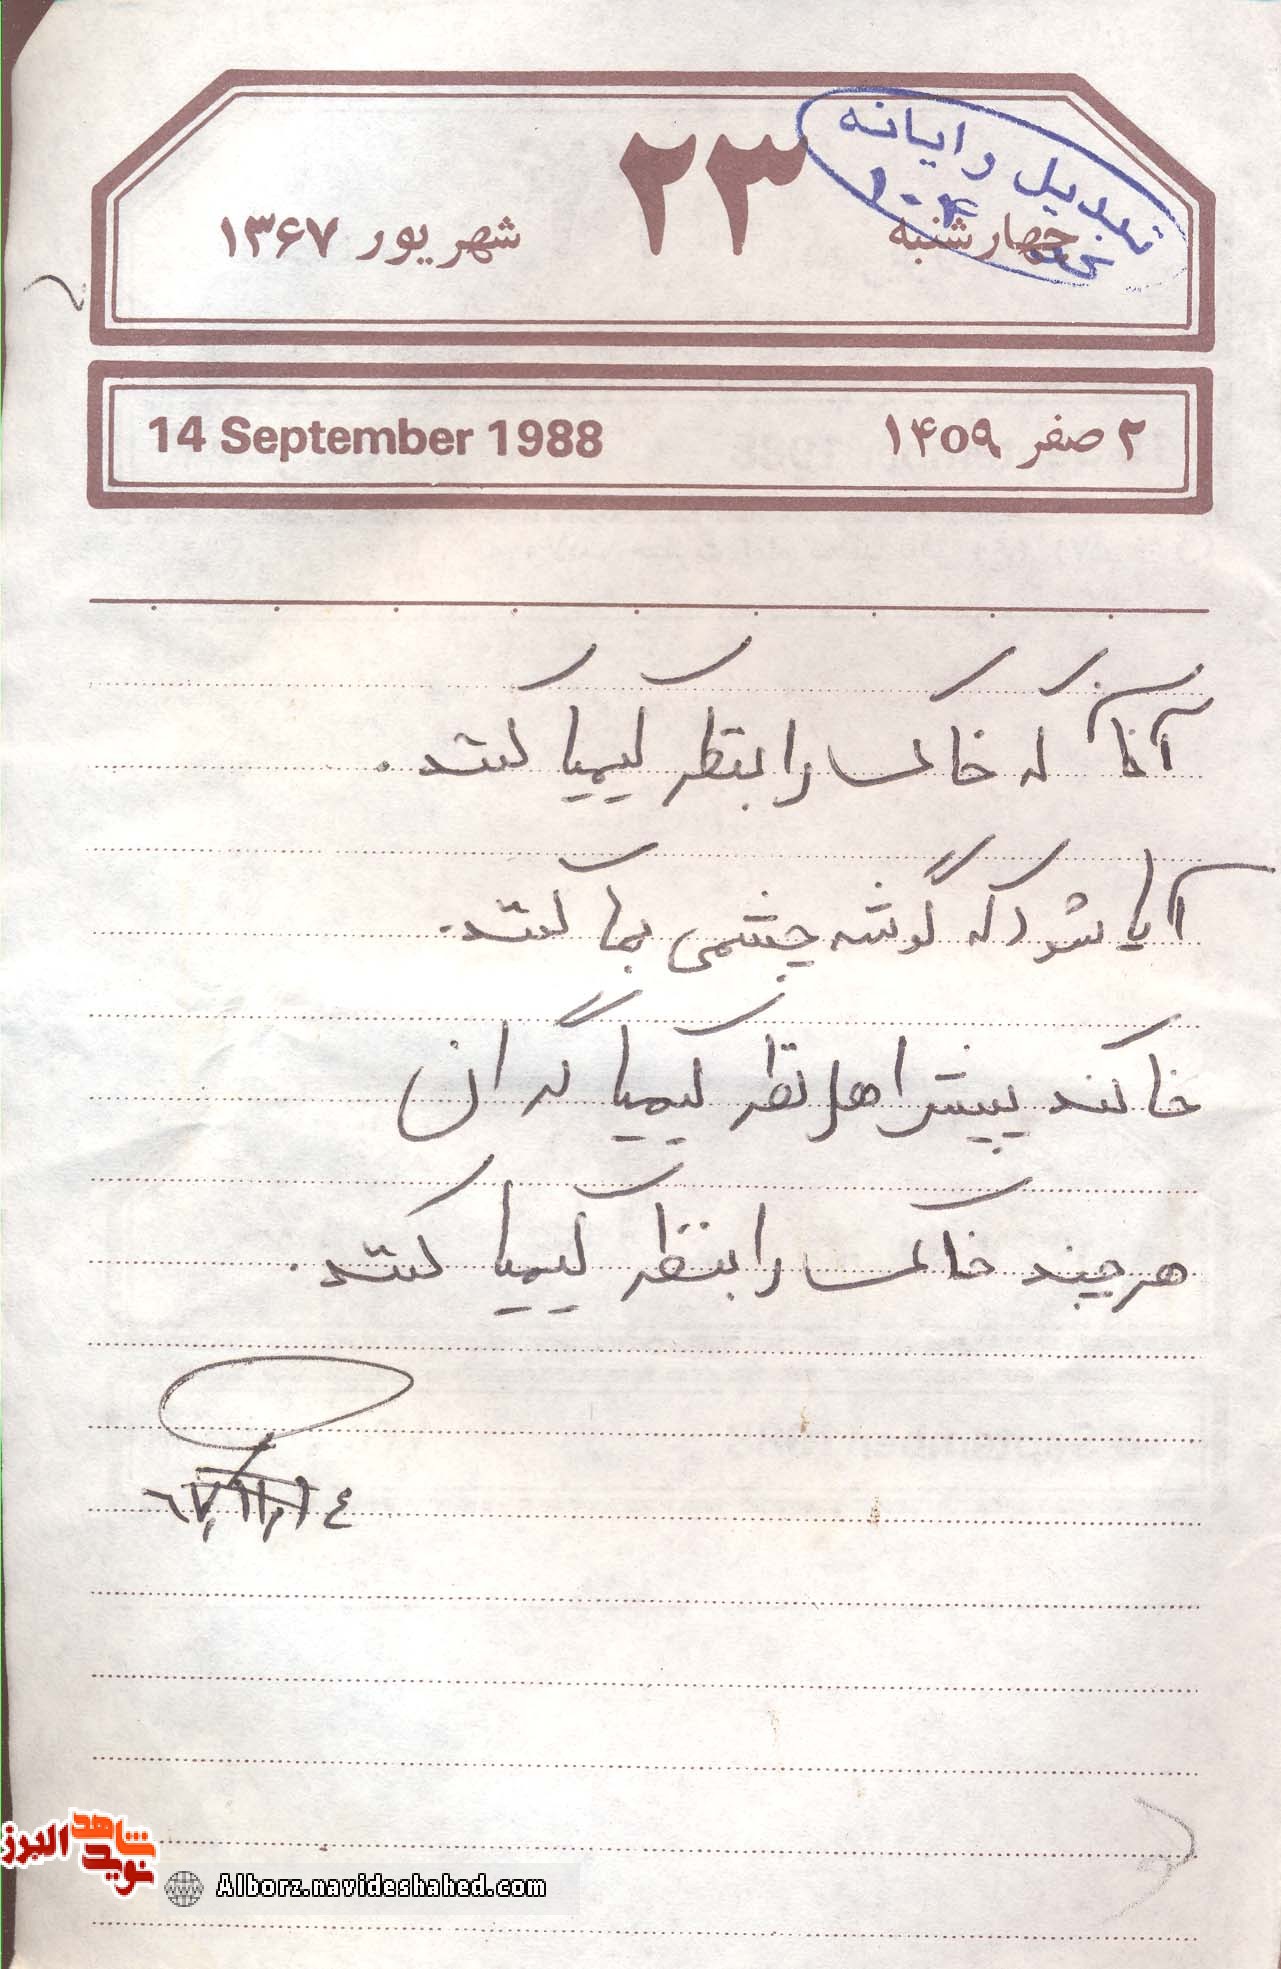 تبدیل رایانه
۲۳
چهارشنبه
شهریور ۱۳۶۷
۲ صفر ۱۴۰۹
14 September 1988
آنان که خاک را بنظر کیمیا کنند.
آیا شود که گوشه چشمی بما کنند.
خاکند پیش اهل نظر کیمیا گران
هر چند خاک را بنظر کیمیا کنند.
نوید شاهد البرز
Alborz.navideshahed.com